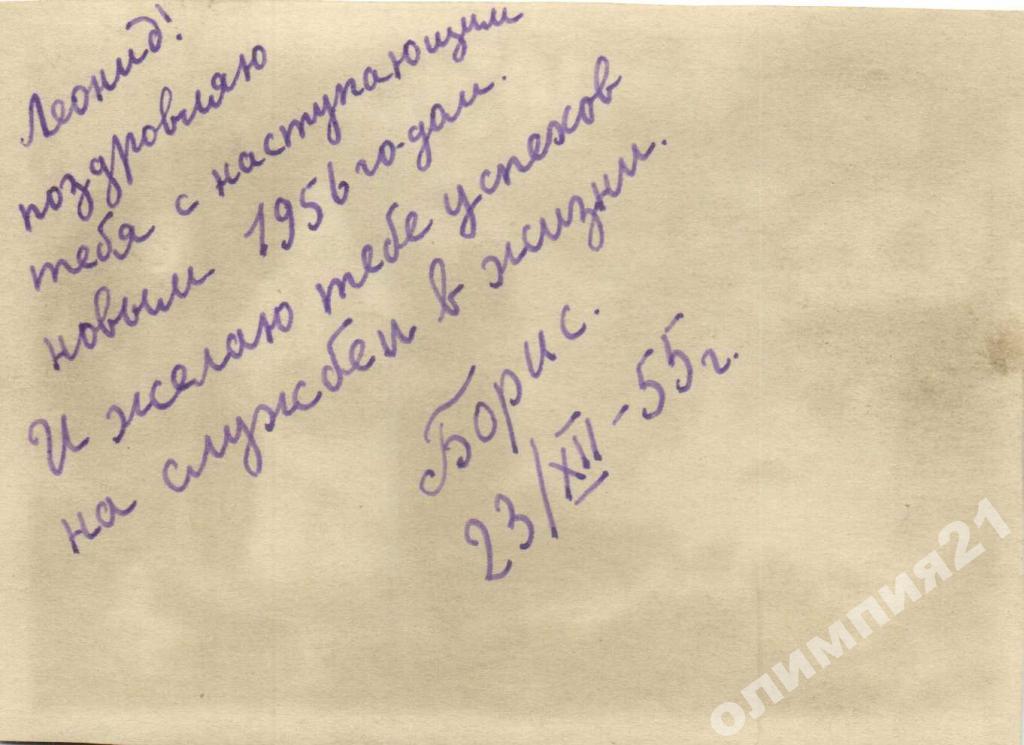 Леонид!
поздровляю
тебя с наступающим
новым 1956 го-дом.
И желаю тебе успехов
на службеи в жизни.
Борис.
23/XII-55г.
олимпия21